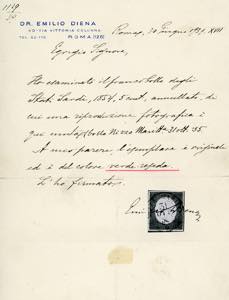 1129
DR. EMILIO DIENA
VIA VITTORIA COLONNA
ROMA (126)
Roma, 20 Giugno 1939. XVII
Egregio Signore,
Ho esaminato il francobollo degli
Stati Sardi, 1854, 5 cent., annullato, di
cui una riproduzione fotografica è
qui unita
A mio parere l'esemplare è originale
ed è del colore verde
L'ho firmato.
Emilio Diena